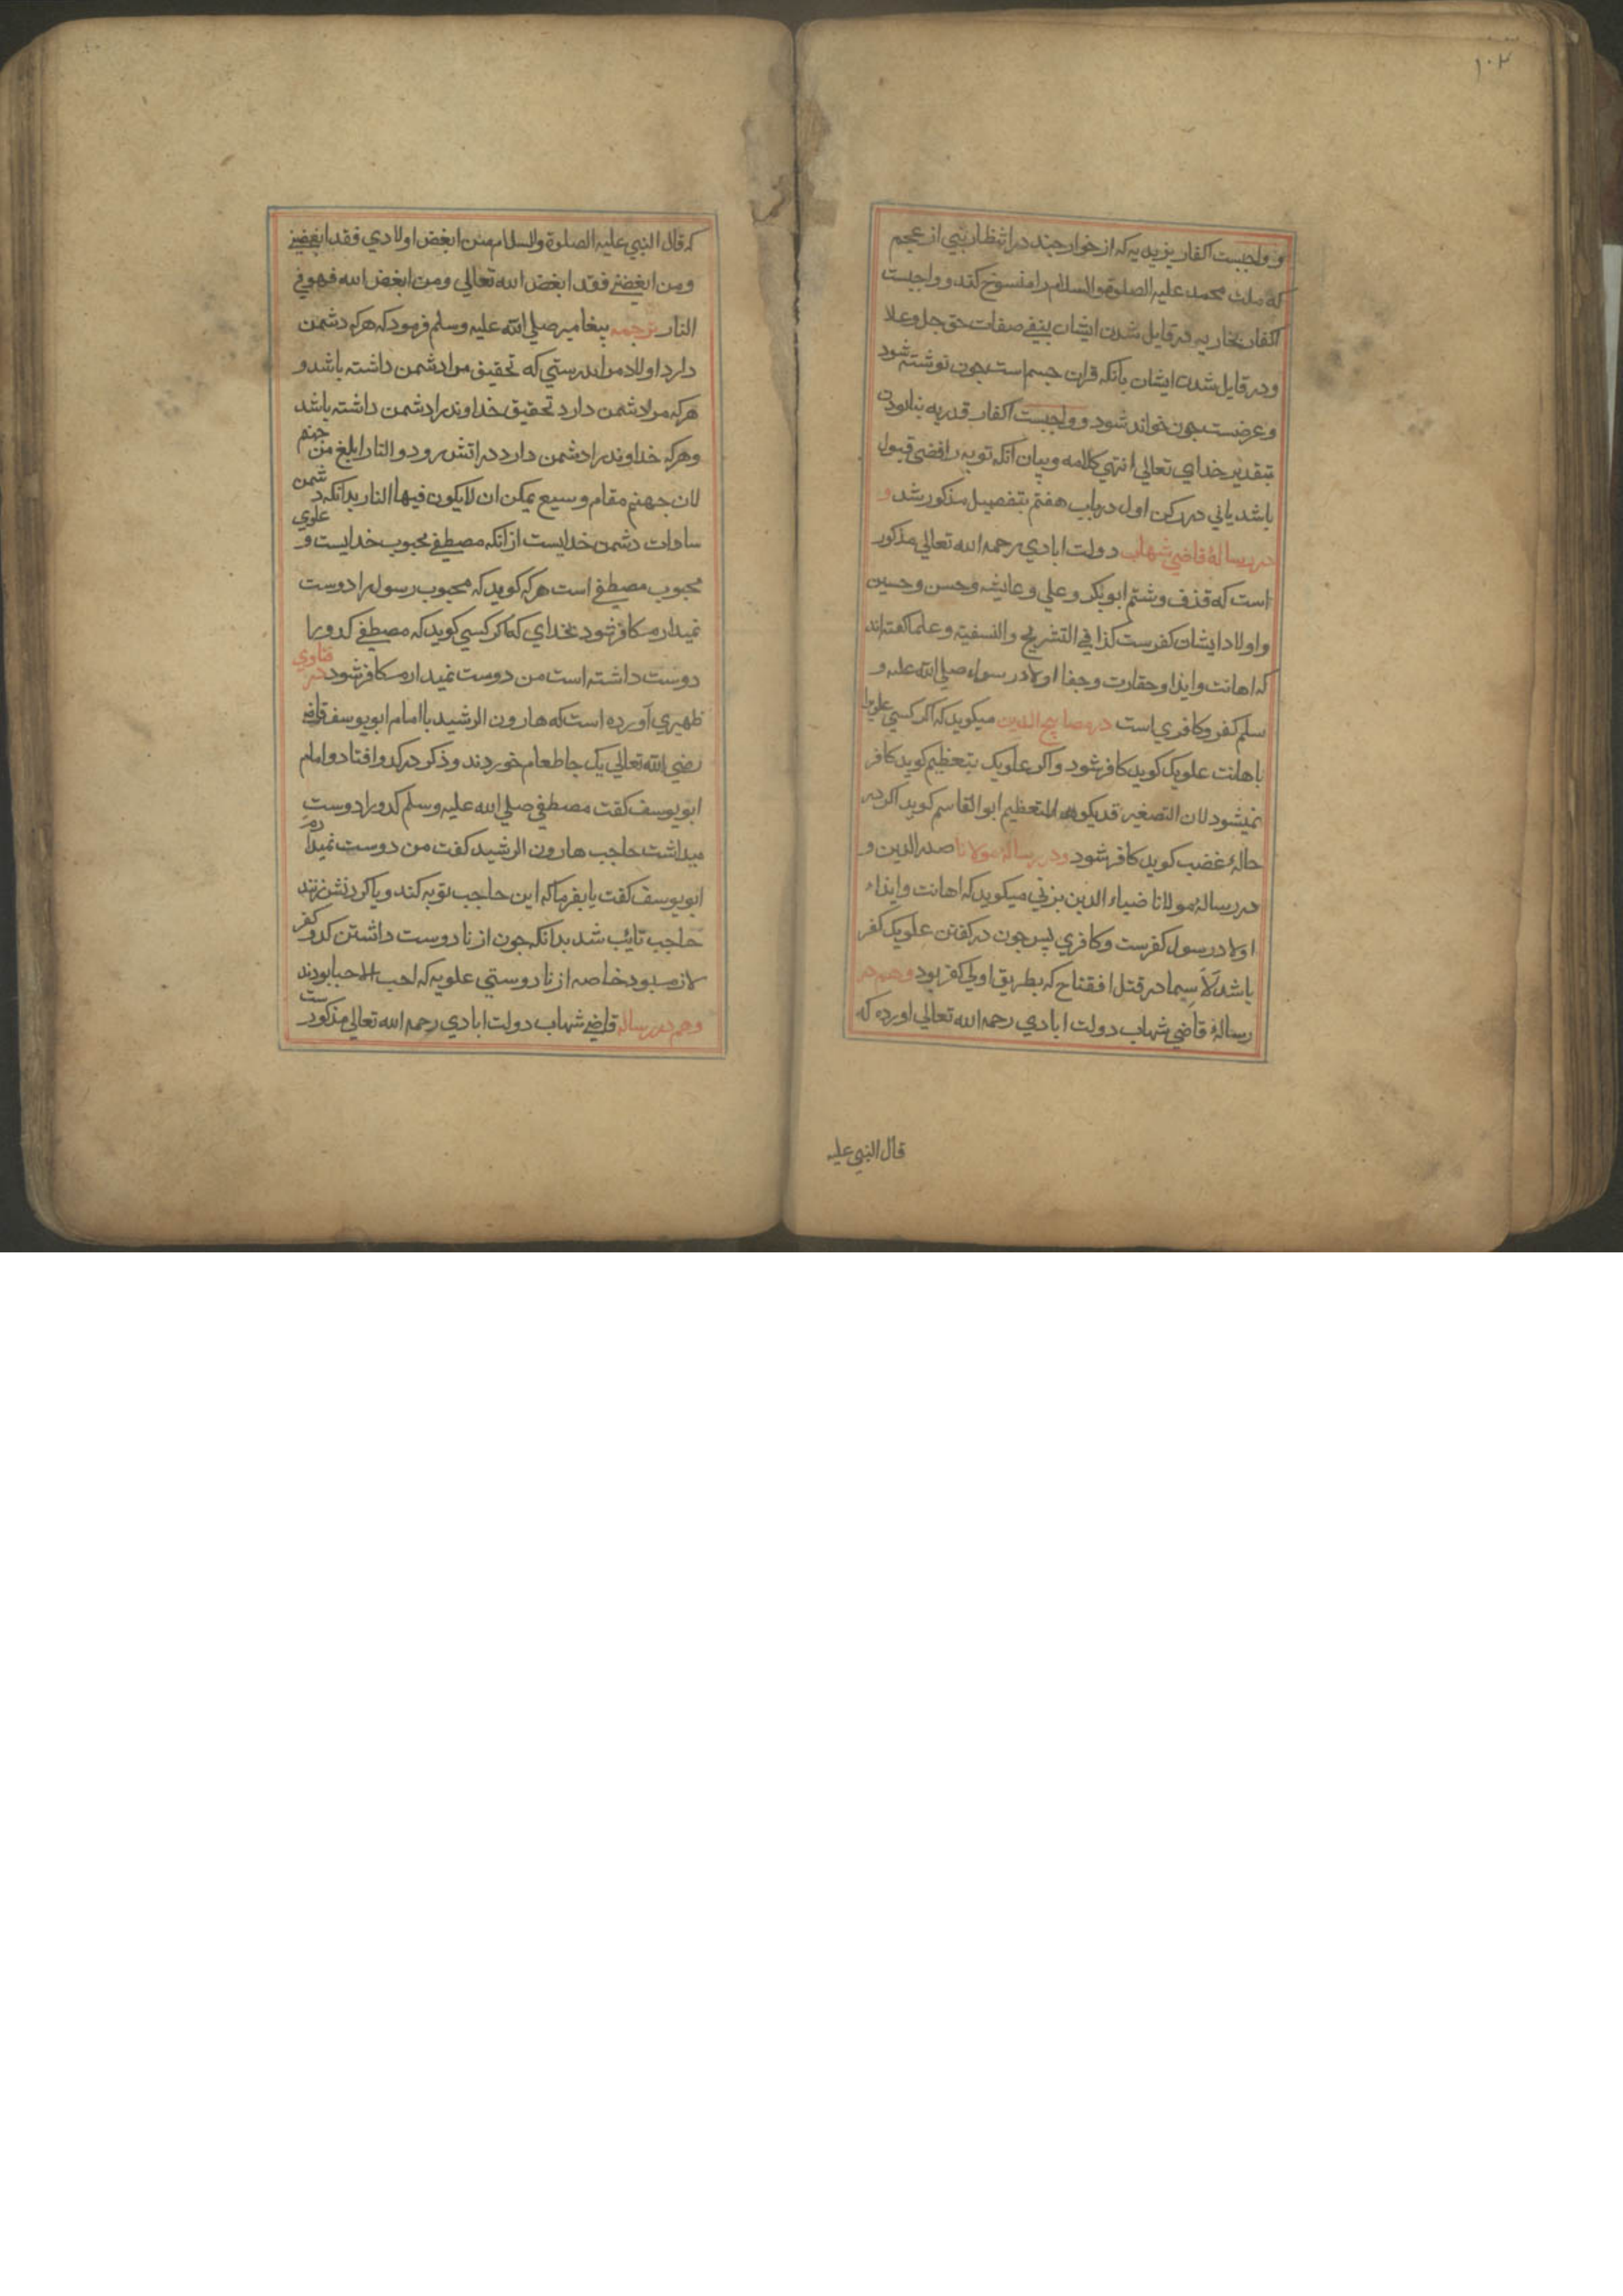 ۱۰۲
و واجبست اکفار یزیدیه که از خوارجند در انتظار نبی از عجم
که ملت محمد علیه الصلوة والسلام را منسوخ کند و واجبست
اکفار نجاریه در قایل شدن ایشان بنفی صفات حق جل وعلا
ودر قایل شدن ایشان بانکه قران جسم است چون نوشته شود
وعرضست چون خواند شود و واجبست اکفار قدریه بنابودن
بتقدیر خدای تعالی انتهی کلامه وبیان انکه توبه رافضی قبول
باشد یانی در رکن اول در باب هفتم بتفصیل مذکور شد و
در رسالۀ قاضی شهاب دولت ابادی رحمه الله تعالی مذکور
است که قذف وشتم ابوبکر و علی و عایشه وحسن وحسین
واولاد ایشان کفرست کذا فی التشریح والنسفیة وعلما گفته‌اند
که اهانت وایذا وحقارت وجفا اولاد رسول صلی الله علیه و
سلم کفر وکافری است در مصابیح الدین میکوید که اگر کسی علویرا
باهانت علویک کوید کافر شود واکر علویک بتعظیم کوید کافر
نمیشود لان التصغیر قدیکون للتعظیم ابو القاسم کوید اکر در
حالۀ غضب کوید کافر شود ودر رسالۀ مولانا صدر الدین و
در رسالۀ مولانا ضیاء الدین برنی میکوید که اهانت وایذاء
اولاد رسول کفرست وکافری پس چون در کفتن علویک کفر
باشد لاسیما در قتل افقناح که بطریق اولی کفر بود وهم در
رسالۀ قاضی شهاب دولت ابادی رحمه الله تعالی اورده که
قال النبی علیه
که قال النبی علیه الصلوة والسلام من ابغض اولادی فقد ابغضنی
ومن ابغضنی فقد ابغض الله تعالی ومن ابغض الله فهو فی
النار ترجمه پیغامبر صلی الله علیه وسلم فرمود که هرکه دشمن
دارد اولاد مرا بدرستی که تحقیق مرا دشمن داشته باشد و
هرکه مرا دشمن دارد تحقیق خداوند را دشمن داشته باشد
وهرکه خداوند را دشمن دارد در اتش رود والنار ابلغ من جهنم
لان جهنم مقام وسیع یمکن ان لایکون فیها النار بدانکه دشمن
سادات دشمن خدایست ازانکه مصطفی محبوب خدایست و علوی
محبوب مصطفی است هرکه کوید که محبوب رسول را دوست
نمیدارم کافر شود بخدای که اکر کسی کوید که مصطفی کدو را
دوست داشته است من دوست نمیدارم کافر شود در فتاوی
ظهیری آورده است که هارون الرشید با امام ابویوسف قاضی
رضی الله تعالی یک جا طعام خوردند وذکر در کدو افتاد و امام
ابویوسف کفت مصطفی صلی الله علیه وسلم کدو را دوست
میداشت حاجب هارون الرشید کفت من دوست نمیدارم
ابویوسف کفت یا بفرما که این حاجب توبه کند ویا کردنش زنند
حاجب تایٔب شد بدانکه چون از نا دوست داشتن کدو کفر
لازم بود خاصه از نا دوستی علویه که احب الاحبا بودند
وهم در رساله قاضی شهاب دولت ابادی رحمه الله تعالی مذکورست